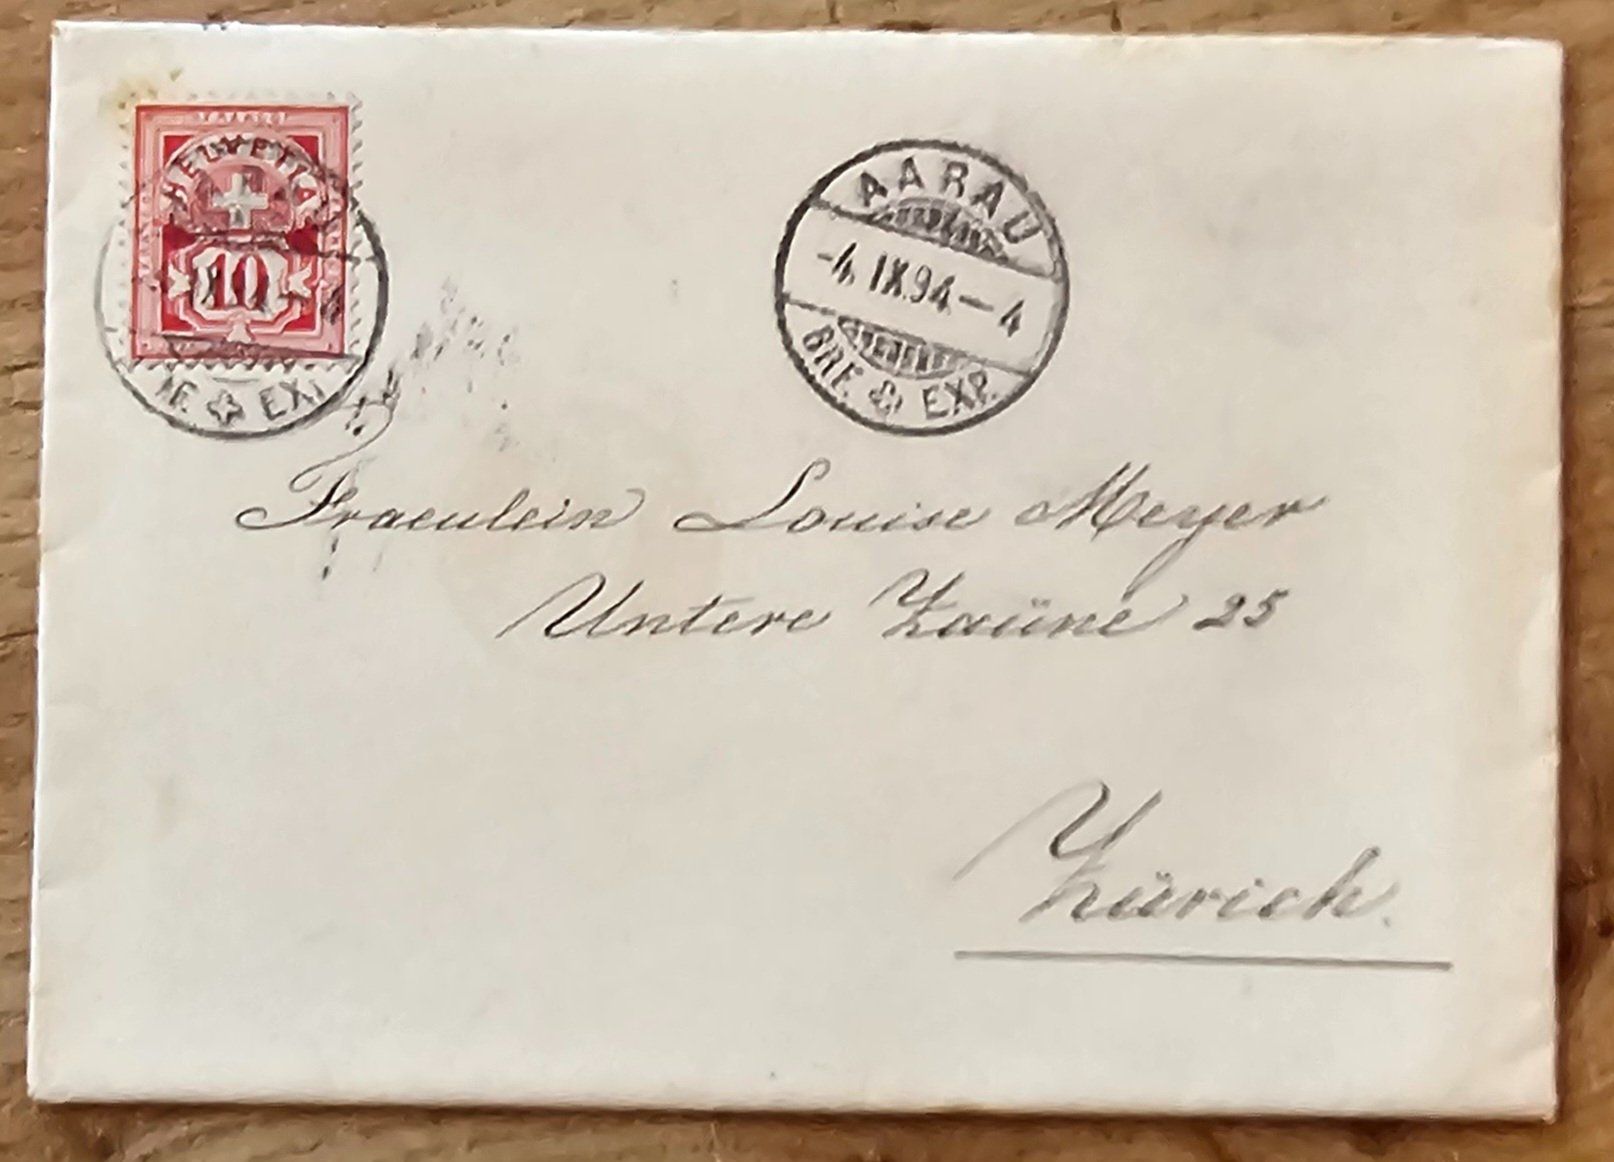 HELVETIA
10
BRF. EXP.
AARAU
-4.IX.94-4
BRF. EXP.
Fraeulein Louise Meyer
Untere Zaüne 25
Zürich.